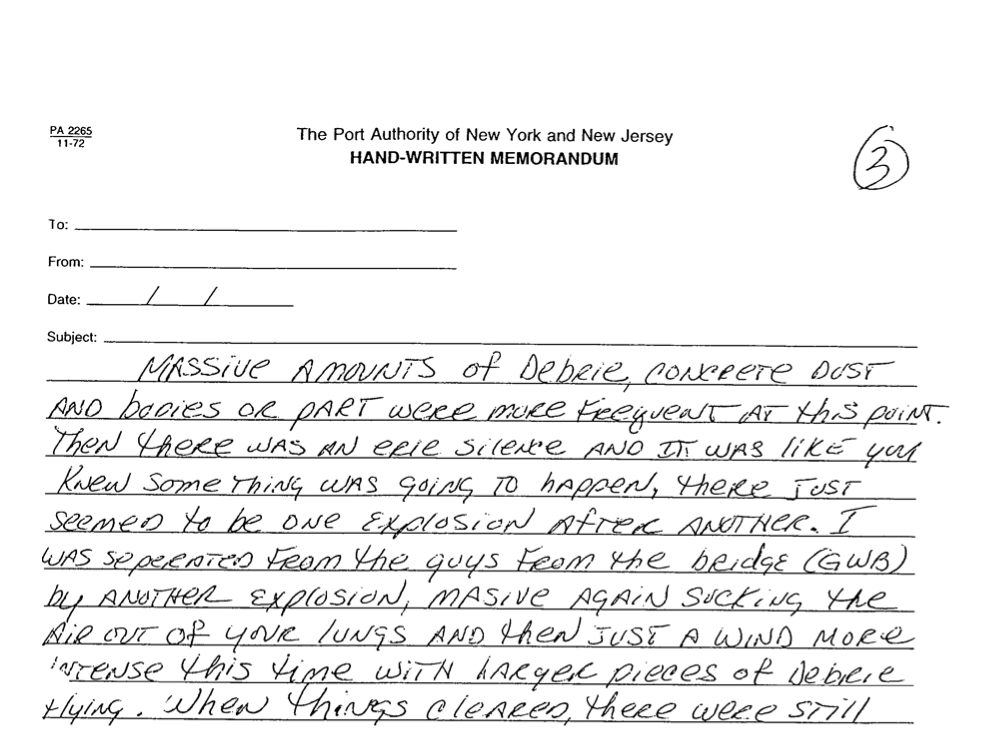 PA 2265
11-72
The Port Authority of New York and New Jersey
HAND-WRITTEN MEMORANDUM
3
To:
From:
Date: / /
Subject:
MASSIVE AMOUNTS of Debrie, CONCRETE DUST
AND bodies OR pART WERE MORE FREEQUENT AT this point.
Then there WAS AN ERIE SilENCE AND IT WAS liKE you
KNEW SomETHiNG WAS GOiNG TO hAppEN, thERE JUST
seemed to be ONE EXplOSiON AfTER ANOTHER. I
WAS SEPERATED FROM the guys FROM the bridgE (GWB)
by ANOTHER EXplOSiON, MASIVE AGAiN SUCKiNG the
AiR OUT Of YOUR lUNGS AND thEN JUST A WiND MORE
iNTENSE this time WiTH LARGER piECES of DEbRiE
flyiNG. WhEN thiNGS ClEARED, thERE WERE STill